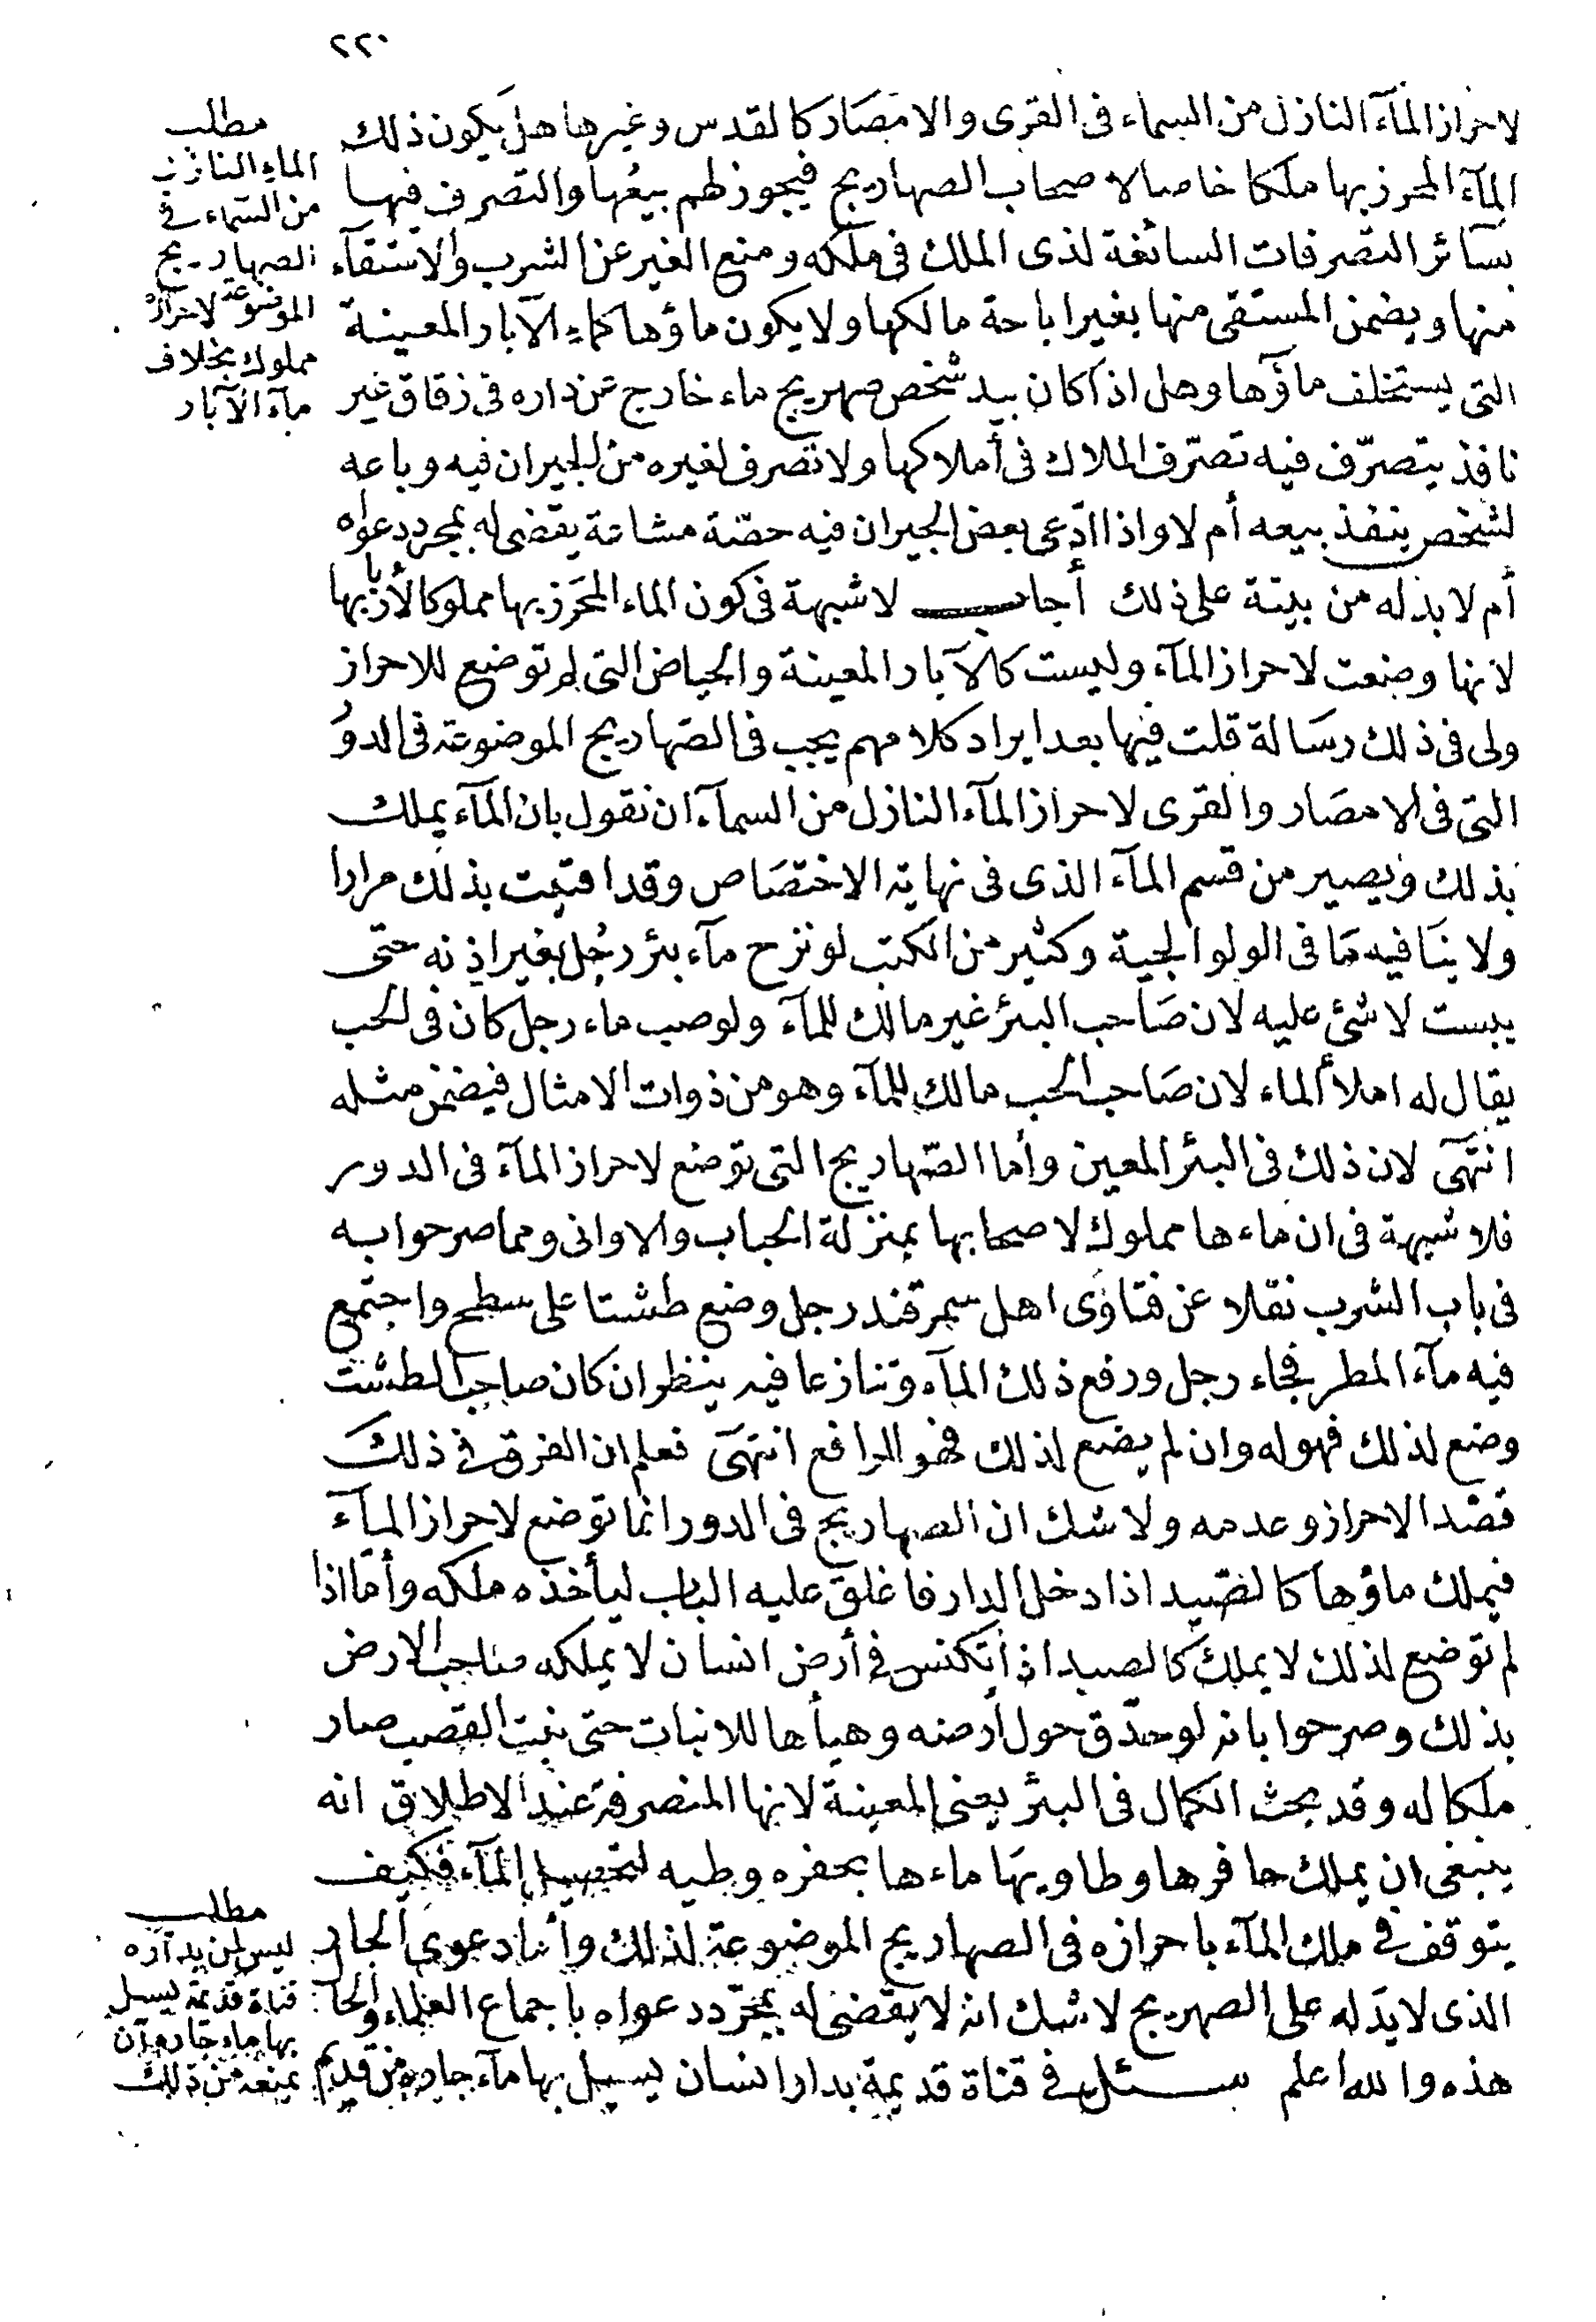 ٢٢٠
لاحراز المآء النازل من السماء فى القرى والامصَار كالقدس وغيرها هل يكون ذلك
المآء المحرز بها ملكا خاصا لاصحاب الصهاريج فيجوز لهم بيعُها والتصرف فيها
بسَائر التصرفات السائغة لذى الملك فى ملكه ومنع الغير عن الشرب والاستقآء
منها ويضمن المستقى منها بغير اباحة مالكها ولا يكون ماؤها كماء الآبار المعينة
التى يستخلف ماؤها وهل اذا كان بيد شخص صهريج ماء خارج عن داره فى زقاق غير
نافذ يتصرّف فيه تصرّف الملاك فى أملاكها ولا تصرف لغيره من الجيران فيه وباعه
لشخص ينفذ بيعه أم لا واذا ادّعى بعض الجيران فيه حصّة مشاعة يقضى له بمجرد دعواه
أم لا بد له من بينة على ذلك أجاب لا شبهة فى كون الماء المحَرز بها مملوكا لأربابها
لانها وضعت لاحراز المآء وليست كالآبار المعينة والحياض التى لم توضع للاحراز
ولى فى ذلك رسَالة قلت فيها بعد ايراد كلامهم يجب فى الصّهاريج الموضوعة فى الدوُ
التى فى الامصَار والقرى لاحراز المآء النازل من السمآء ان نقول بان المآء يملك
بذلك ويصير من قسم المآء الذى فى نهاية الاختصَاص وقد افتيت بذلك مرارا
ولا ينَافيه مَا فى الولوالجية وكثير من الكتب لو نزح مآء بئر رجُل بغير اذنه حتى
يبست لا شئ عليه لان صَاحب البئر غير مالك للمآء ولو صب ماء رجل كان فى الحب
يقال له املأ الماء لان صَاحب الحب مالك للمآء وهو من ذوات الامثال فيضمن مثله
انتهَى لان ذلك فى البئر المعين وأما الصّهاريج التى توضع لاحراز المآء فى الدور
فلا شبهة فى ان ماءها مملوك لاصحابها بمنزلة الحباب والاوانى ومما صرحوا به
فى باب الشرب نقلا عن فتاوى اهل سمرقند رجل وضع طشتا على سطح واجتمع
فيه مآء المطر فجاء رجل ورفع ذلك المآء وتنازعا فيه ينظر ان كان صاحب الطشت
وضع لذلك فهو له وان لم يضع لذلك فهو للرافع انتهَى فعلم ان الفرق فى ذلك
قصْد الاحراز وعدمه ولا شك ان الصهاريج فى الدور انما توضع لاحراز المآء
فيملك ماؤها كالصّيد اذا دخل الدار فاغلق عليه الباب ليأخذه ملكه وأمّا اذا
لم توضع لذلك لا يملك كالصيد اذا تكنس فى أرض انسان لا يملكه صاحب الارض
بذلك وصرحوا بانه لو حدّق حول أرضه وهيأها للانبات حتى نبت القصب صار
ملكا له وقد بحث الكمال فى البئر يعنى المعينة لانها المنصرفة عند الاطلاق انه
ينبغى ان يملك حافرها وطاويهَا ماءها بحفره وطيه لتحصيل المآء فكيف
يتوقف فى ملك المآء باحرازه فى الصهاريج الموضوعة لذلك وأما دعوى الجار
الذى لا يد له على الصهريج لا شك انه لا يقضى له بمجرّد دعواه باجماع العلماء والحآ
هذه والله اعلم سـئل فى قناة قديمة بدار انسان يسيل بها مآء جاره من قديم
مطلب
الماء النازل
من السّماء فى
الصهاريج
الموضوعة لاحرازه
مملوك بخلاف
مآء الآبار
مطلب
ليس لمن بداره
قناة قديمة يسيل
بها ماء جاره أن
يمنعه من ذلك